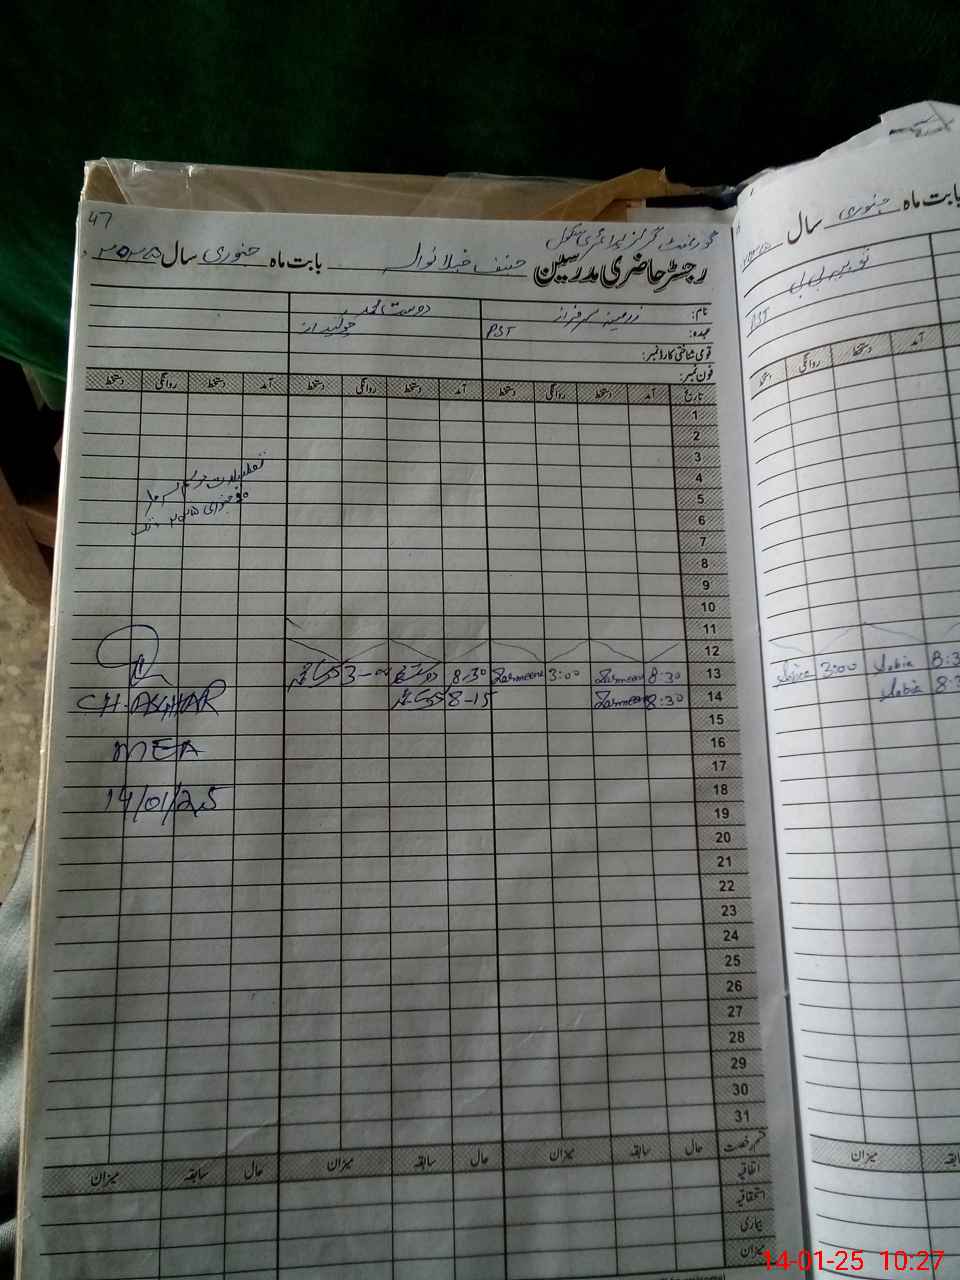 47
گورنمنٹ گرلز پرائمری سکول
رجسٹر حاضری مدرسین حنیف بابت ماہ جنوری سال ۲۰۲۵
نام: زرمینہ سرفراز دوست محمد
عہدہ: PST چوکیدار
قومی شناختی کارڈ نمبر:
فون نمبر:
تاریخ آمد دستخط روانگی دستخط آمد دستخط روانگی دستخط آمد دستخط روانگی دستخط
1
2
3
4
تعطیلات موسم سرما
5
6
7
8
9
10
11
12
13 8:30 Zarmeena 3:00 Zarmeena 8-30 3-00
14 8:30 Zarmeena 8-15
CH. ASGHAR
15
16
MEA
17
18
14/01/25
19
20
21
22
23
24
25
26
27
28
29
30
31
قسم رخصت حال سابقہ میزان حال سابقہ میزان حال سابقہ میزان
اتفاقیہ
استحقاقیہ
بیماری
میزان
بابت ماہ جنوری سال
بی بی
PST
آمد دستخط روانگی دستخط
8:3 Sobia 3:00 Sobia
8:3 Sobia
میزان
14-01-25 10:27